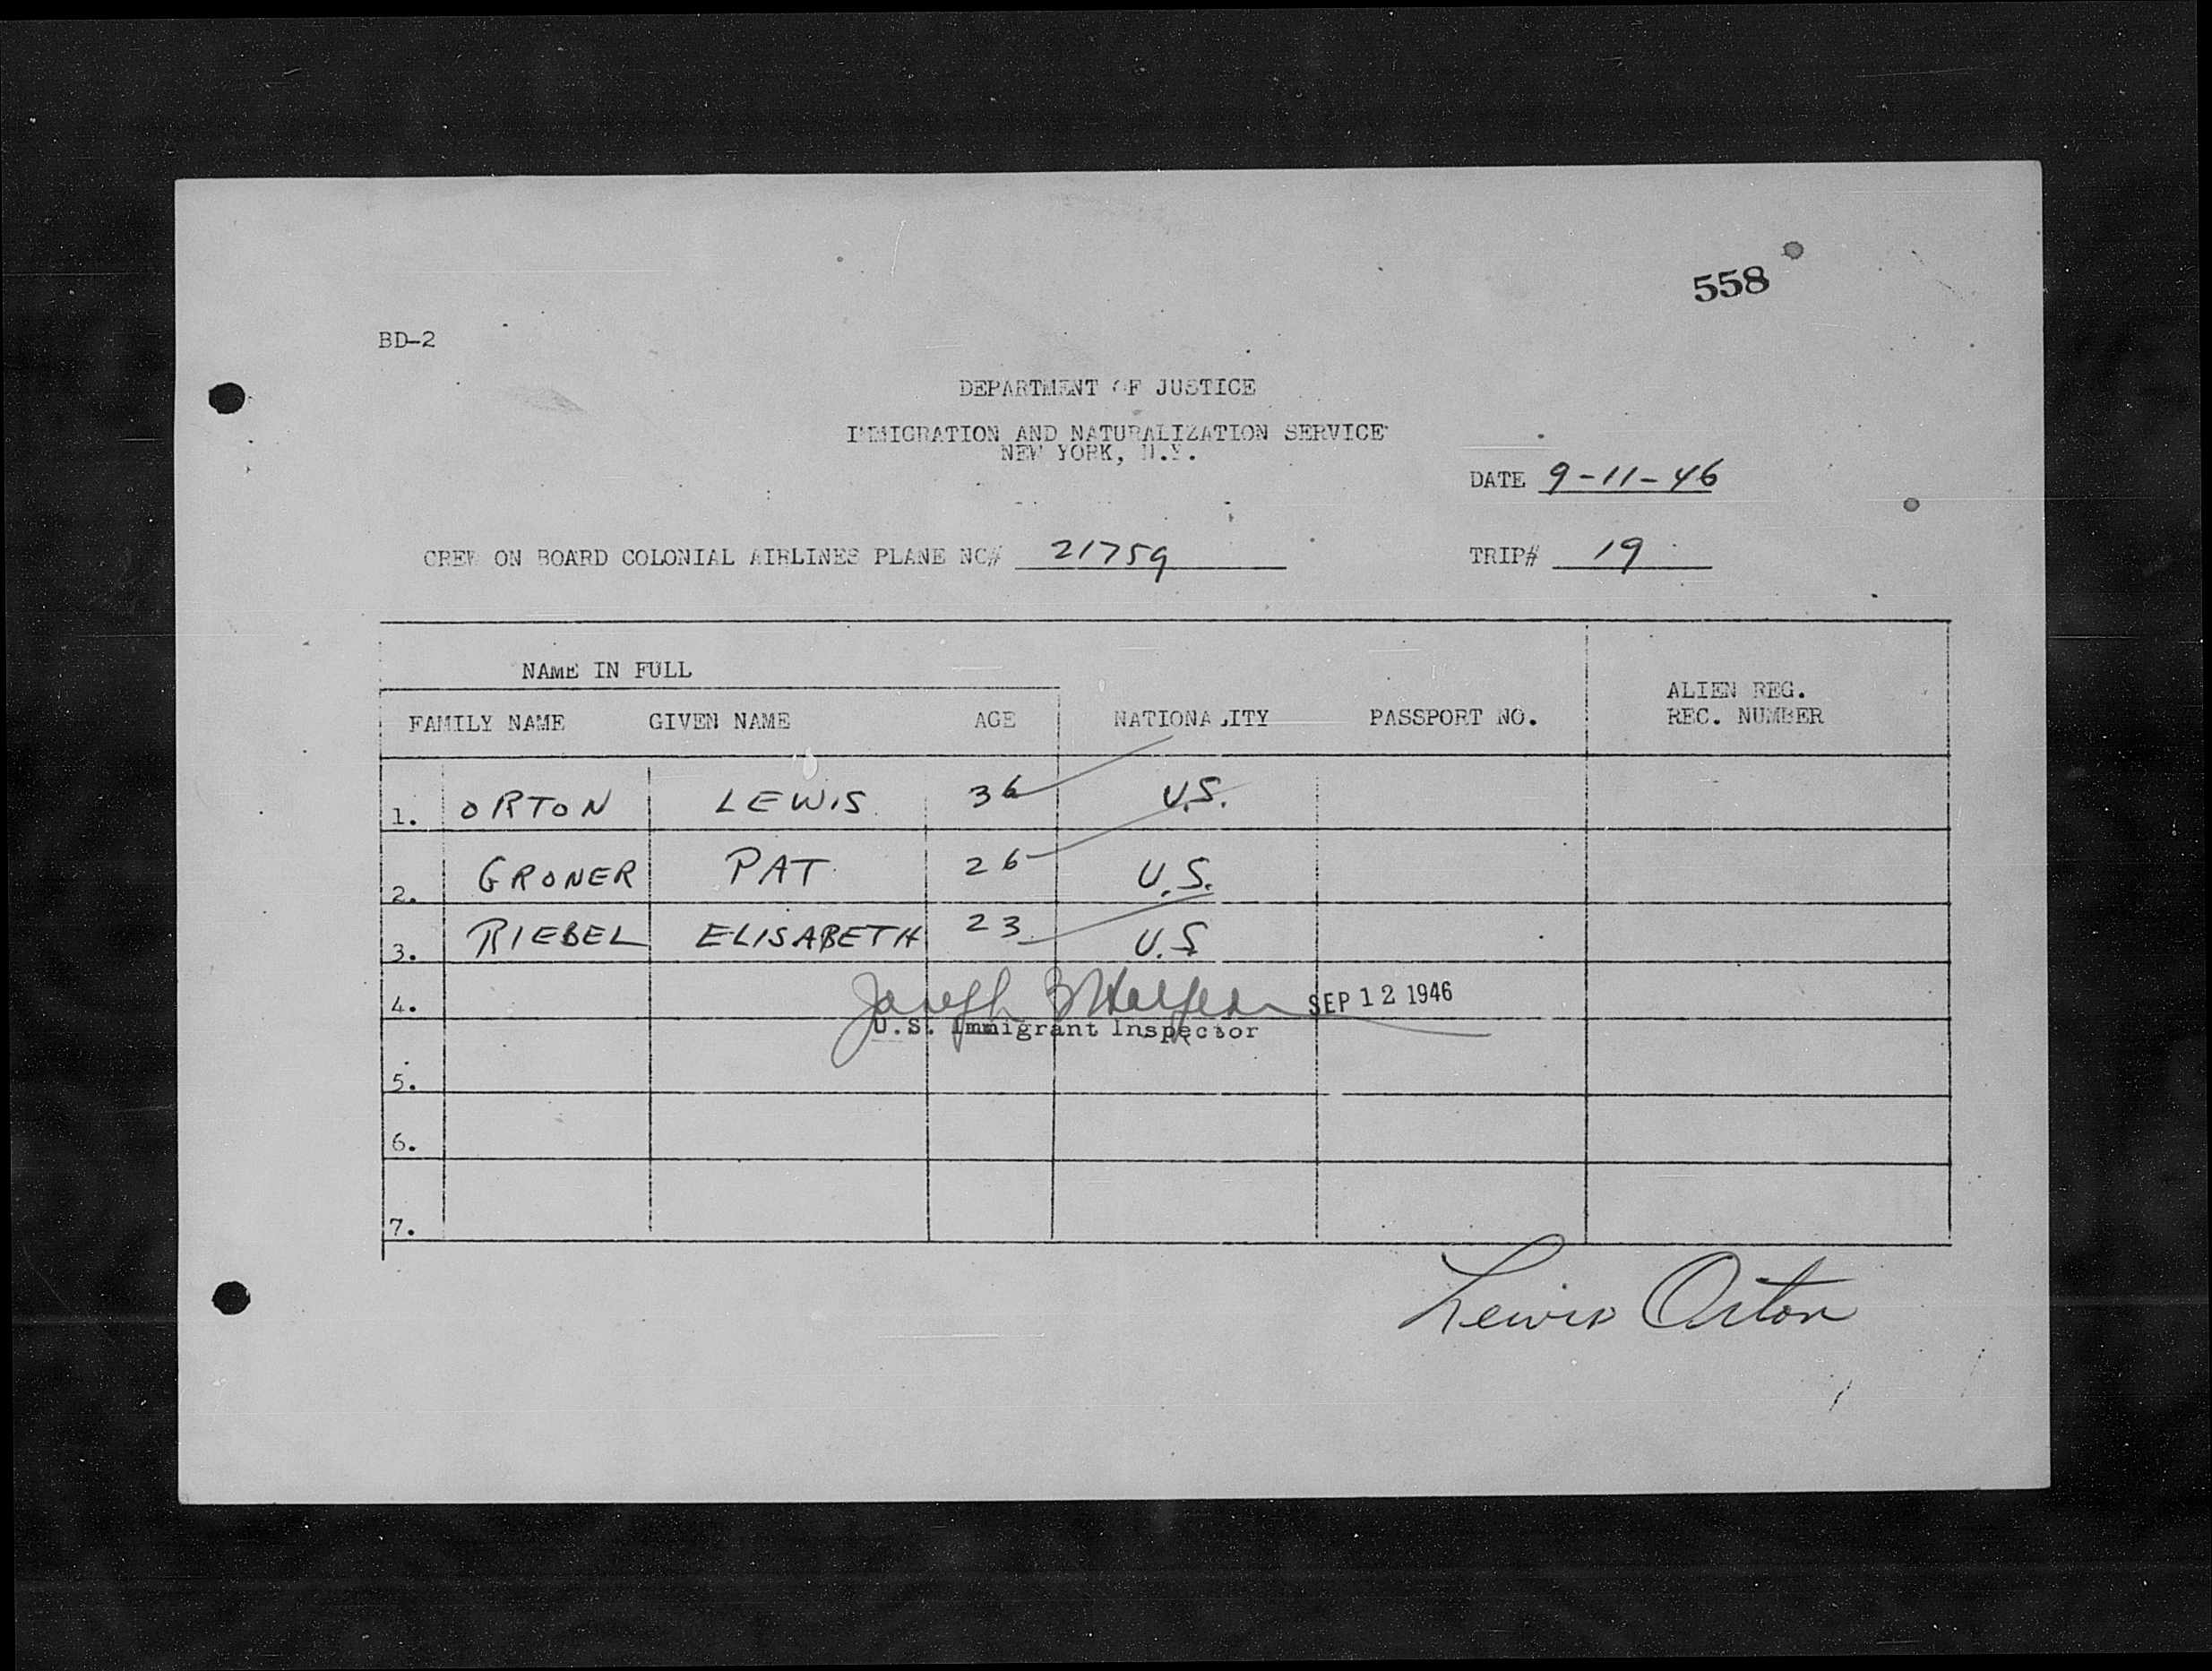 558
BD-2
DEPARTMENT OF JUSTICE
IMMIGRATION AND NATURALIZATION SERVICE
NEW YORK, N.Y.
DATE 9-11-46
CREW ON BOARD COLONIAL AIRLINES PLANE NC# 21759 TRIP# 19
NAME IN FULL
FAMILY NAME GIVEN NAME AGE NATIONALITY PASSPORT NO. ALIEN REG. REC. NUMBER
1. ORTON LEWIS 36 U.S.
2. GRONER PAT 26 U.S.
3. RIEBEL ELISABETH 23 U.S
4. Joseph SEP 12 1946
U.S. Immigrant Inspector
5.
6.
7.
Lewis Orton